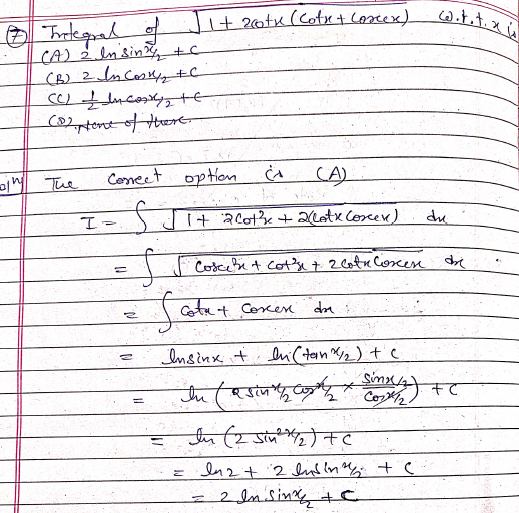 ⑦ Integral of √1 + 2cotx (Cotx + Cosecx) w.r.t. x is
(A) 2 ln sin x/2 + C
(B) 2 ln cos x/2 + C
(C) 1/2 ln cos x/2 + C
(D) None of these.
Soln The Correct option is (A)
I = ∫ √1 + 2cot²x + 2(cotx Cosecx) dx
= ∫ √Cosec²x + cot²x + 2 cotx Cosecx dx
= ∫ Cotx + Cosecx dx
= ln sinx + ln (tan x/2) + C
= ln (2 sin x/2 cos x/2 × sin x/2 / cos x/2) + C
= ln (2 sin² x/2) + C
= ln 2 + 2 ln sin x/2 + C
= 2 ln sin x/2 + C